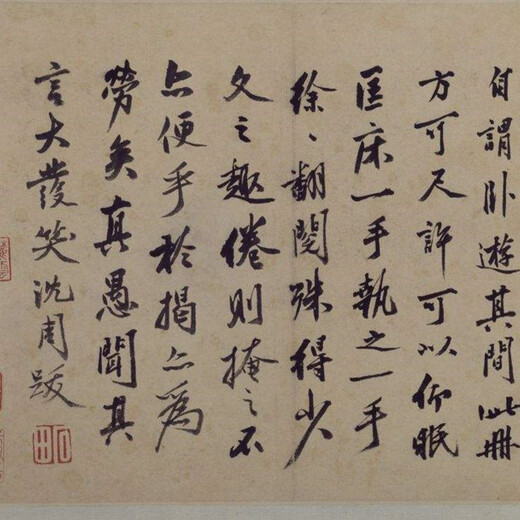 自謂卧遊其間此冊
方可尺許可以仰眠
匡床一手執之一手
徐〻翻閱殊得少
文之趣倦則掩之不
亦便乎於揭亦為
勞矣真愚聞其
言大發笑沈周跋
石田